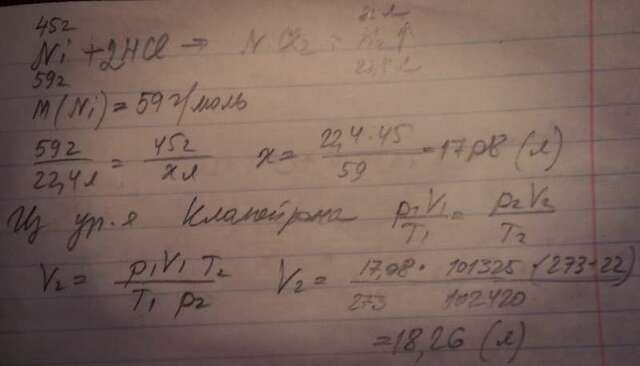 45г
Ni + 2HCl → NiCl₂ + H₂↑
59г 22,4 л
M(Ni) = 59 г/моль
59г/22,4л = 45г/x л x = 22,4·45/59 = 17,08 (л)
Из ур.я Клапейрона p₁V₁/T₁ = p₂V₂/T₂
V₂ = p₁V₁T₂/T₁p₂ V₂ = 17,08 · 101325 · (273+22)/273 102420
= 18,26 (л)